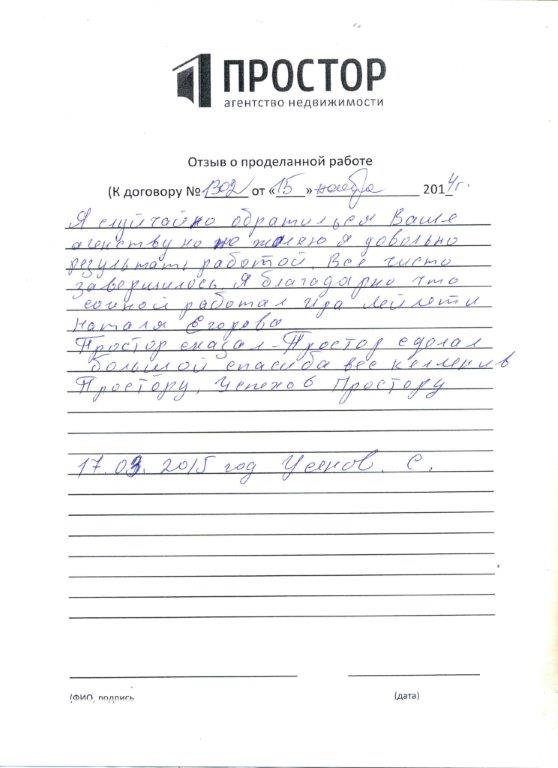 ПРОСТОР
агентство недвижимости
Отзыв о проделанной работе
(К договору № 1302 от «15» ноября 2014г.
Я случайно обратился Ваше
агенству но не жалею я довольно
результать работой. Все чисто
завершилось. Я благодарно что
сомной работал Ира
Наталя Егорова
Простор сказал - Простор сделал
большой спасиба вес
Простору, Успехов Простору
17.03.2015 год Усенов. С.
(ФИО, подпись
(дата)